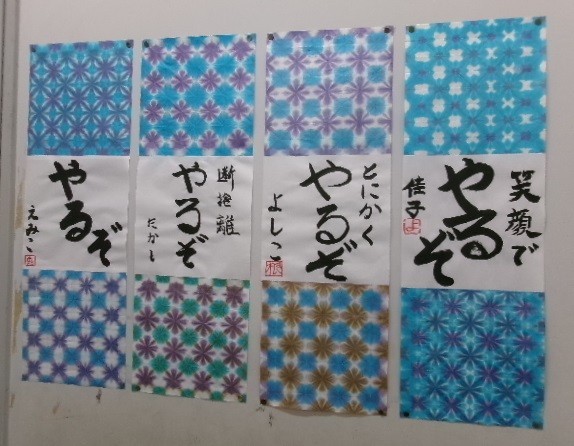 笑顔で
やるぞ
佳子
とにかく
やるぞ
よしこ
断捨離
やるぞ
たかし
やるぞ
えみこ